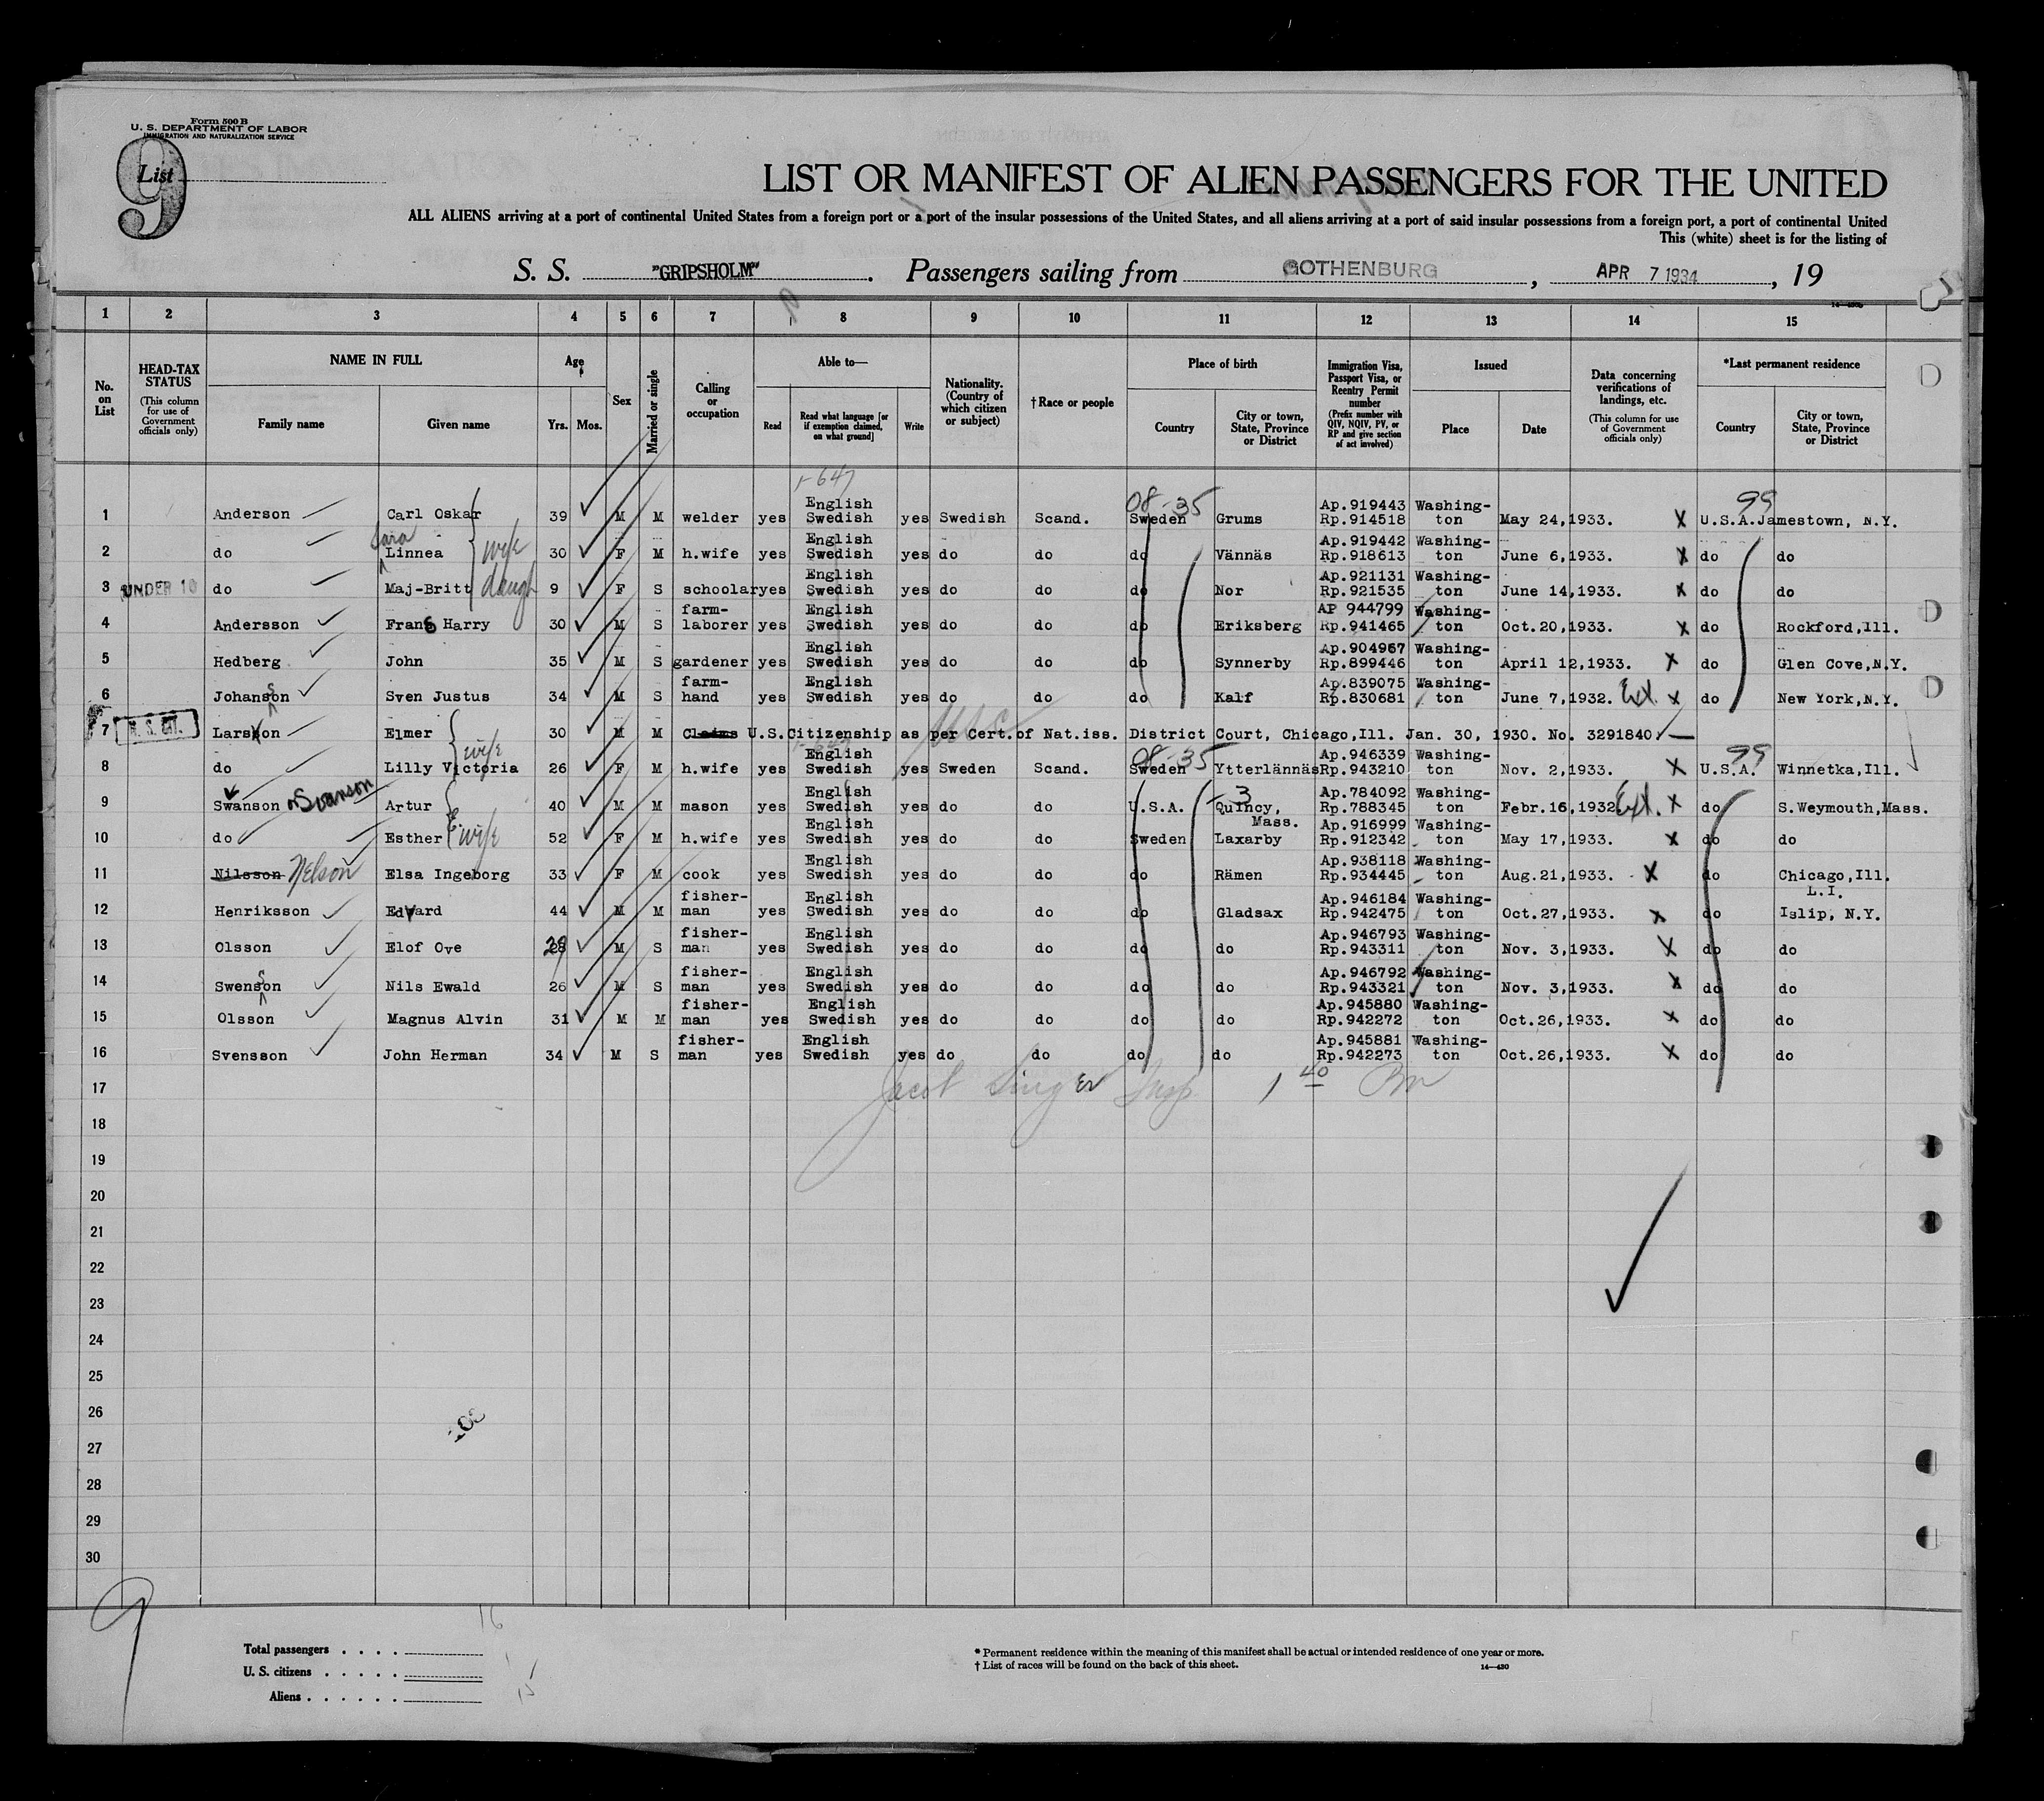 Form 500 B
U. S. DEPARTMENT OF LABOR
IMMIGRATION AND NATURALIZATION SERVICE
9
List
LIST OR MANIFEST OF ALIEN PASSENGERS FOR THE UNITED
ALL ALIENS arriving at a port of continental United States from a foreign port or a port of the insular possessions of the United States, and all aliens arriving at a port of said insular possessions from a foreign port, a port of continental United
This (white) sheet is for the listing of
S. S. "GRIPSHOLM". Passengers sailing from GOTHENBURG, APR 7 1934, 19
1 2 3 4 5 6 7 8 9 10 11 12 13 14 15
No. on List
HEAD-TAX STATUS (This column for use of Government officials only)
NAME IN FULL Family name Given name
Age Yrs. Mos.
Sex
Married or single
Calling or occupation
Able to— Read Read what language [or if exemption claimed, on what ground] Write
Nationality. (Country of which citizen or subject)
†Race or people
Place of birth Country City or town, State, Province or District
Immigration Visa, Passport Visa, or Reentry Permit number (Prefix number with QIV, NQIV, PV, or RP and give section of act involved)
Issued Place Date
Data concerning verifications of landings, etc. (This column for use of Government officials only)
*Last permanent residence Country City or town, State, Province or District
1-647 08-35 99
1 Anderson Carl Oskar 39 M M welder yes English Swedish yes Swedish Scand. Sweden Grums Ap.919443 Rp.914518 Washington May 24,1933. X U.S.A. Jamestown, N.Y.
2 do Linnea wife 30 F M h.wife yes English Swedish yes do do do Vännäs Ap.919442 Rp.918613 Washington June 6,1933. X do do
3 UNDER 10 do Maj-Britt daugh 9 F S scholar yes English Swedish yes do do do Nor Ap.921131 Rp.921535 Washington June 14,1933. X do do
4 Andersson Frans Harry 30 M S farm-laborer yes English Swedish yes do do do Eriksberg AP 944799 Rp.941465 Washington Oct.20,1933. X do Rockford,Ill.
5 Hedberg John 35 M S gardener yes English Swedish yes do do do Synnerby Ap.904967 Rp.899446 Washington April 12,1933. X do Glen Cove,N.Y.
6 Johansson Sven Justus 34 M S farm-hand yes English Swedish yes do do do Kalf Ap.839075 Rp.830681 Washington June 7,1932. Ext. X do New York,N.Y.
7 Larson Elmer 30 M M Claims U.S.Citizenship as per Cert.of Nat.iss. District Court, Chicago,Ill. Jan. 30, 1930. No. 3291840.
08-35 99
8 do Lilly Victoria wife 26 F M h.wife yes English Swedish yes Sweden Scand. Sweden Ytterlännäs Ap.946339 Rp.943210 Washington Nov. 2,1933. X U.S.A. Winnetka,Ill.
9 Swanson or Svanson Artur 40 M M mason yes English Swedish yes do do U.S.A. -3 Quincy, Mass. Ap.784092 Rp.788345 Washington Febr.16,1932 Ext. X do S.Weymouth,Mass.
10 do Esther E. wife 52 F M h.wife yes English Swedish yes do do Sweden Laxarby Ap.916999 Rp.912342 Washington May 17,1933. X do do
11 Nilsson Nelson Elsa Ingeborg 33 F M cook yes English Swedish yes do do do Rämen Ap.938118 Rp.934445 Washington Aug.21,1933. X do Chicago,Ill.
12 Henriksson Edvard 44 M M fisher-man yes English Swedish yes do do do Gladsax Ap.946184 Rp.942475 Washington Oct.27,1933. X do L.I. Islip, N.Y.
13 Olsson Elof Ove 29 M S fisher-man yes English Swedish yes do do do do Ap.946793 Rp.943311 Washington Nov. 3,1933. X do do
14 Swensson Nils Ewald 26 M S fisher-man yes English Swedish yes do do do do Ap.946792 Rp.943321 Washington Nov. 3,1933. X do do
15 Olsson Magnus Alvin 31 M M fisher-man yes English Swedish yes do do do do Ap.945880 Rp.942272 Washington Oct.26,1933. X do do
16 Svensson John Herman 34 M S fisher-man yes English Swedish yes do do do do Ap.945881 Rp.942273 Washington Oct.26,1933. X do do
17 Jacob Singer Insp 1 40 Pm
18
19
20
21
22
23
24
25
26
27
28
29
30
9
16
Total passengers
U. S. citizens
Aliens 15
* Permanent residence within the meaning of this manifest shall be actual or intended residence of one year or more.
† List of races will be found on the back of this sheet.
14—430